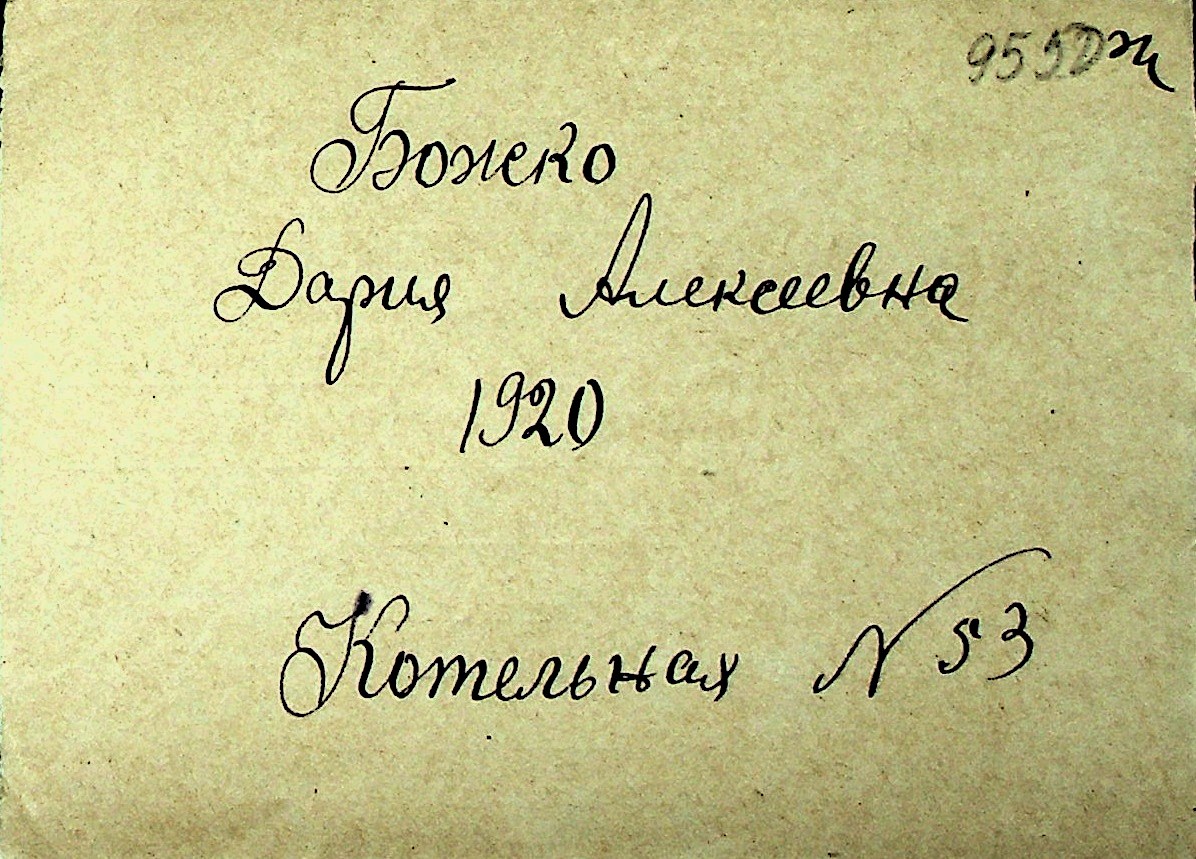 Божко
Дария Алексеевна
1920
Котельная N 53